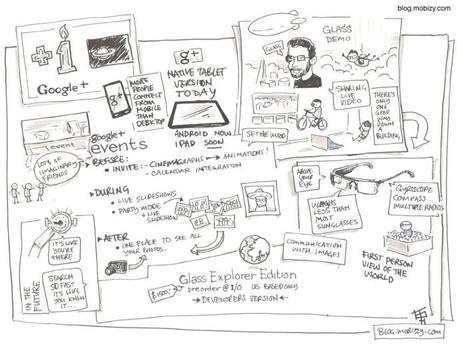 blog.mobizy.com
+1
Google+
g+
MORE
PEOPLE
CONNECT
FROM
MOBILE
THAN
DESKTOP
g+
NATIVE TABLET
VERSION
TODAY
ANDROID NOW
IPAD SOON
GLASS
GLASS
DEMO
SHARING
LIVE
VIDEO
THERE'S
ONLY
ONE
GOOD
WAY
DOWN
A
BUILDING
SET THE MOOD
EVENT
google+
events
LOTS OF
IMAGINARY
FRIENDS
BEFORE:
• INVITE: - CINEMAGRAPHS → ANIMATIONS!
- CALENDAR INTEGRATION
DURING
• LIVE SLIDESHOWS
• PARTY MODE
+ LIVE
SLIDESHOW
AFTER
• ONE PLACE TO SEE ALL
YOUR PHOTOS.
IT'S LIKE
YOU'RE
THERE
IN THE
FUTURE
SEARCH
SO FAST
IT'S LIKE
YOU KNOW
IT...
ABOVE
YOUR
EYE
WEIGHS
LESS THAN
MOST
SUNGLASSES
GYROSCOPE
COMPASS
MULTIPLE RADIOS
COMMUNICATION
WITH IMAGES
FIRST PERSON
VIEW OF THE
WORLD
Glass Explorer Edition
$1500:
preorder @ I/O
US BASED ONLY
→ DEVELOPERS VERSION ←
BLOG.mobizy.com